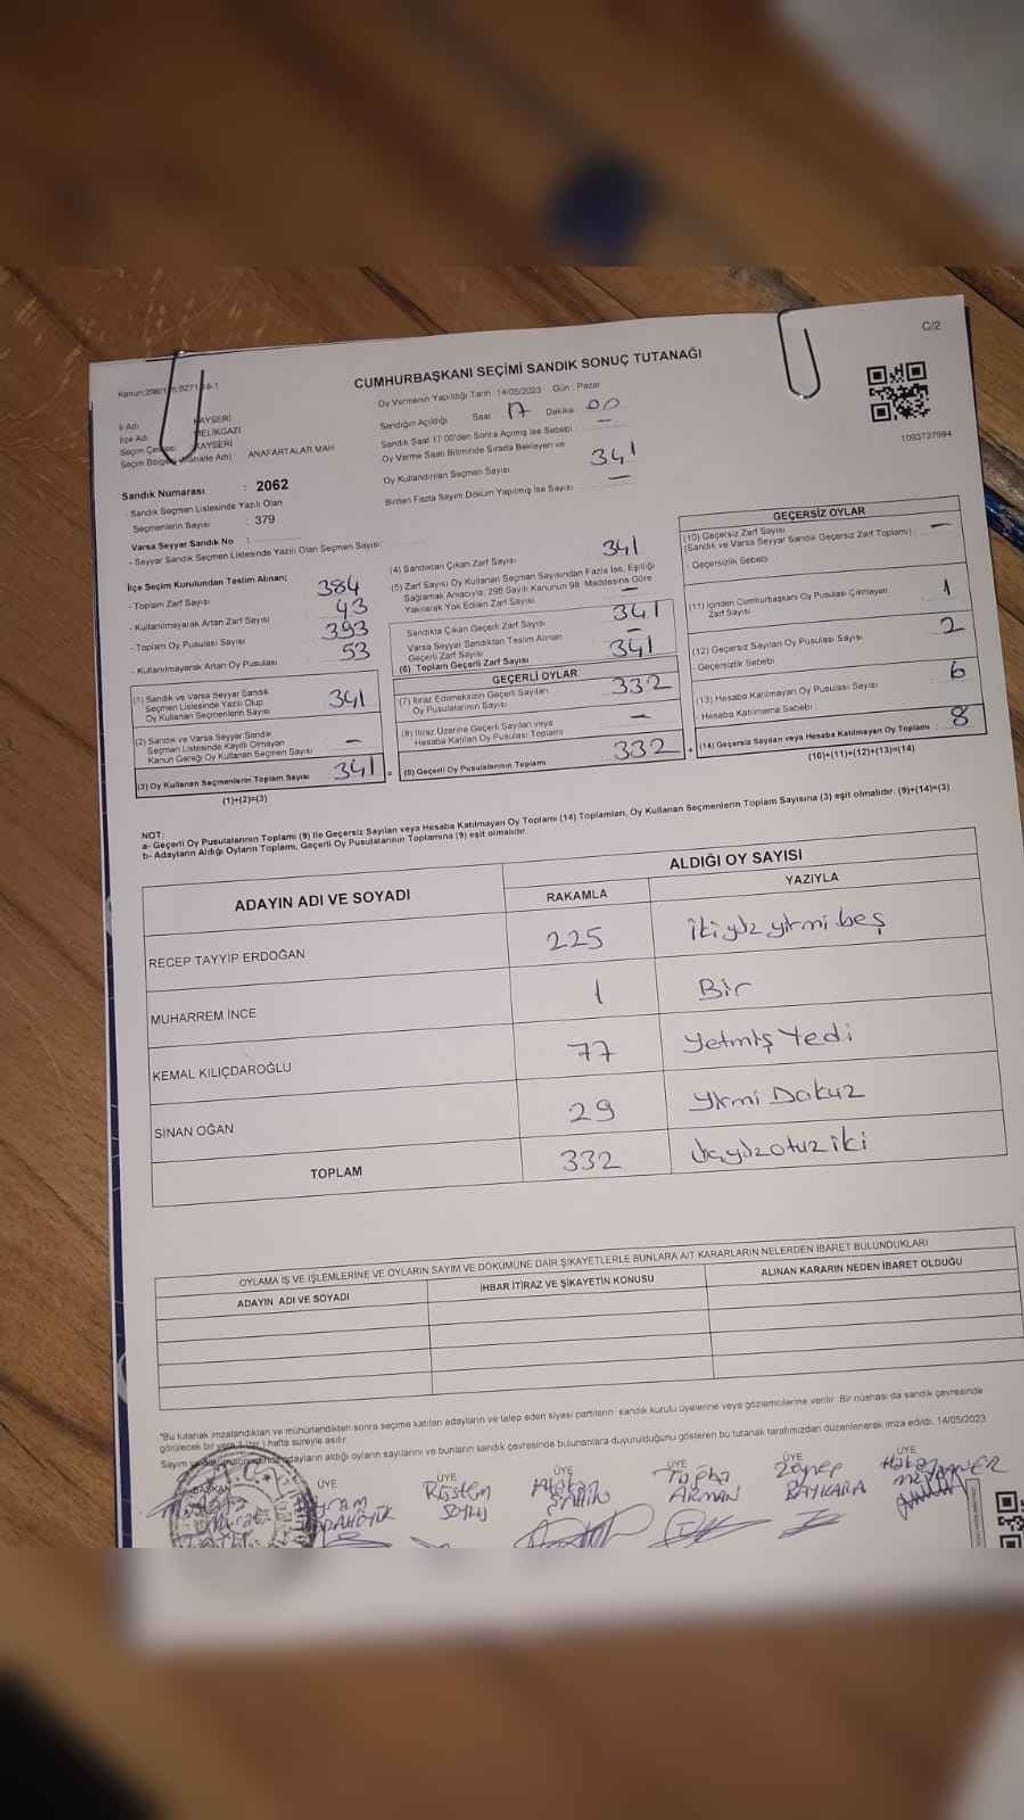 C/2
CUMHURBAŞKANI SEÇİMİ SANDIK SONUÇ TUTANAĞI
Oy Vermenin Yapıldığı Tarih : 14/05/2023 Gün : Pazar
Sandığın Açıldığı Saat 17 Dakika 00
Sandık Saat 17:00'den Sonra Açılmış İse Sebebi —
Oy Verme Saati Bitiminde Sırada Bekleyen ve
Oy Kullandırılan Seçmen Sayısı 341
Birden Fazla Sayım Döküm Yapılmış İse Sayısı —
1093737984
İl Adı KAYSERİ
İlçe Adı MELİKGAZİ
KAYSERİ
ANAFARTALAR MAH
Sandık Numarası : 2062
- Sandık Seçmen Listesinde Yazılı Olan
Seçmenlerin Sayısı : 379
Varsa Seyyar Sandık No :
- Seyyar Sandık Seçmen Listesinde Yazılı Olan Seçmen Sayısı:
İlçe Seçim Kurulundan Teslim Alınan;
- Toplam Zarf Sayısı 384
- Kullanılmayarak Artan Zarf Sayısı 43
- Toplam Oy Pusulası Sayısı 393
- Kullanılmayarak Artan Oy Pusulası 53
(1) Sandık ve Varsa Seyyar Sandık
Seçmen Listesinde Yazılı Olup
Oy Kullanan Seçmenlerin Sayısı 341
(2) Sandık ve Varsa Seyyar Sandık
Seçmen Listesinde Kayıtlı Olmayan
Kanun Gereği Oy Kullanan Seçmen Sayısı —
(3) Oy Kullanan Seçmenlerin Toplam Sayısı 341
(1)+(2)=(3)
(4) Sandıktan Çıkan Zarf Sayısı 341
(5) Zarf Sayısı Oy Kullanan Seçmen Sayısından Fazla İse, Eşitliği
Sağlamak Amacıyla, 298 Sayılı Kanunun 98. Maddesine Göre
Yakılarak Yok Edilen Zarf Sayısı —
Sandıkta Çıkan Geçerli Zarf Sayısı 341
Varsa Seyyar Sandıktan Teslim Alınan
Geçerli Zarf Sayısı —
(6) Toplam Geçerli Zarf Sayısı 341
GEÇERLİ OYLAR
(7) İtiraz Edilmeksizin Geçerli Sayılan
Oy Pusulalarının Sayısı 332
(8) İtiraz Üzerine Geçerli Sayılan veya
Hesaba Katılan Oy Pusulası Toplamı —
(9) Geçerli Oy Pusulalarının Toplamı 332
GEÇERSİZ OYLAR
(10) Geçersiz Zarf Sayısı
(Sandık ve Varsa Seyyar Sandık Geçersiz Zarf Toplamı) : —
- Geçersizlik Sebebi
(11) İçinden Cumhurbaşkanı Oy Pusulası Çıkmayan
Zarf Sayısı 1
(12) Geçersiz Sayılan Oy Pusulası Sayısı 2
- Geçersizlik Sebebi
(13) Hesaba Katılmayan Oy Pusulası Sayısı 6
Hesaba Katılmama Sebebi
(14) Geçersiz Sayılan veya Hesaba Katılmayan Oy Toplamı 8
(10)+(11)+(12)+(13)=(14)
NOT:
a- Geçerli Oy Pusulalarının Toplamı (9) ile Geçersiz Sayılan veya Hesaba Katılmayan Oy Toplamı (14) Toplamları, Oy Kullanan Seçmenlerin Toplam Sayısına (3) eşit olmalıdır. (9)+(14)=(3)
b- Adayların Aldığı Oyların Toplamı, Geçerli Oy Pusulalarının Toplamına (9) eşit olmalıdır.
ADAYIN ADI VE SOYADI
ALDIĞI OY SAYISI
RAKAMLA YAZIYLA
RECEP TAYYİP ERDOĞAN 225 ikiyüz yirmi beş
MUHARREM İNCE 1 Bir
KEMAL KILIÇDAROĞLU 77 Yetmiş Yedi
SİNAN OĞAN 29 Yirmi Dokuz
TOPLAM 332 üçyüzotuziki
OYLAMA İŞ VE İŞLEMLERİNE VE OYLARIN SAYIM VE DÖKÜMÜNE DAİR ŞİKAYETLERLE BUNLARA AİT KARARLARIN NELERDEN İBARET BULUNDUKLARI
ADAYIN ADI VE SOYADI İHBAR İTİRAZ VE ŞİKAYETİN KONUSU ALINAN KARARIN NEDEN İBARET OLDUĞU
"Bu tutanak imzalandıktan ve mühürlendikten sonra seçime katılan adayların ve talep eden siyasi partilerin sandık kurulu üyelerine veya gözlemcilerine verilir. Bir nüshası da sandık çevresinde
görülecek bir yere 1 (bir) hafta süreyle asılır.
adayların aldığı oyların sayılarını ve bunların sandık çevresinde bulunanlara duyurulduğunu gösteren bu tutanak tarafımızdan düzenlenerek imza edildi. 14/05/2023
BAŞKAN ÜYE ÜYE ÜYE ÜYE ÜYE ÜYE
Rüstem
Tuğba ARMAN
Zeynep BAYKARA